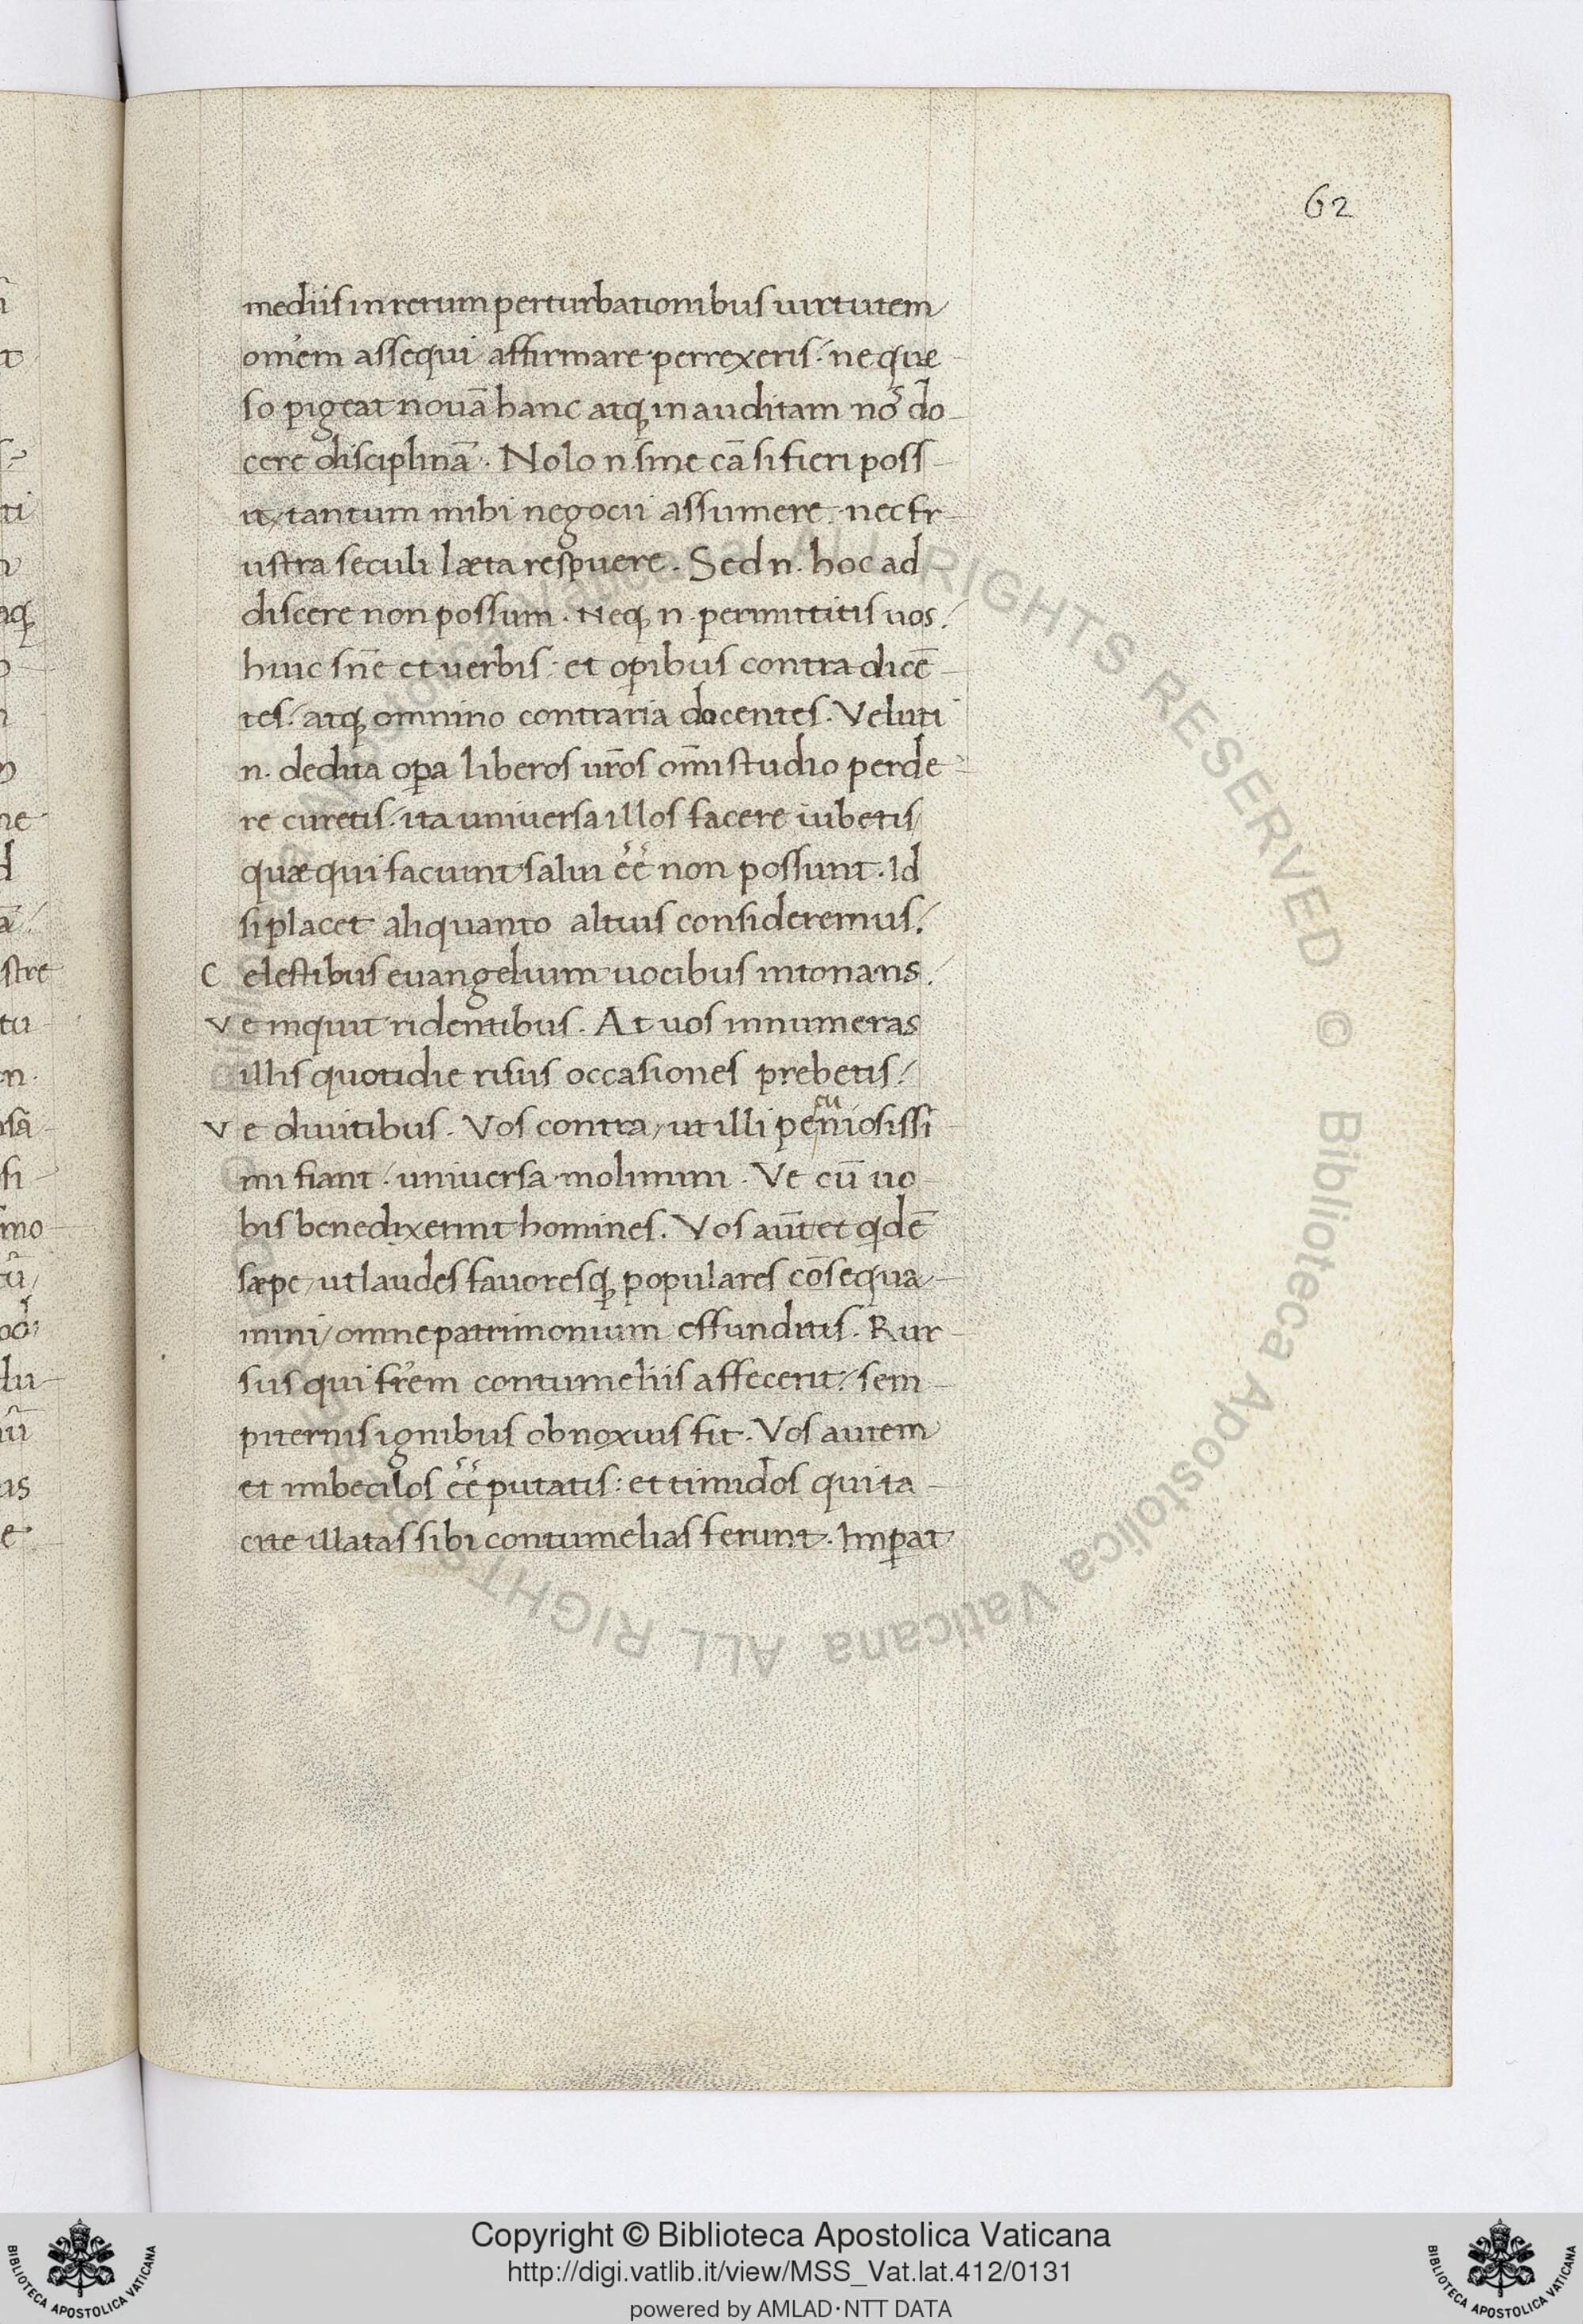 62
mediis in rerum perturbationibus uirtutem
om̄em assequi affirmare perrexeris. ne quæ
so pigeat nouā hanc atq; in auditam nos do
cere disciplinā. Nolo n. sine cā si fieri poss
it, tantum mihi negocii assumere. nec fr
ustra seculi læta respuere. Sed n. hoc ad
discere non possum. Neq; n. permittitis uos.
huic sn̄e et uerbis: et oꝑibus contra dicē
tes. atq; omnino contraria docentes. Veluti
n. dedita oꝑa liberos ur̄os om̄i studio perde
re curetis. ita uniuersa illos facere iubetis
quæ qui faciunt salui ēē non possunt. Id
si placet aliquanto altius consideremus.
C elestibus euangelium uocibus intonans.
V e inquit ridentibus. At uos innumeras
illis quotidie risus occasiones prebetis.
V e diuitibus. Vos contra, ut illi pecuniosissi
mi fiant. uniuersa molimini. Ve cū uo
bis benedixerint homines. Vos aūt et qdē
sæpe, ut laudes fauoresq; populares cōsequa
mini, omne patrimonium effunditis. Rur
sus qui fr̄em contumeliis affecerit. sem
piternis ignibus obnoxius fit. Vos autem
et imbecilos ēē putatis: et timidos qui ta
cite illatas sibi contumelias ferunt. Imꝑat
Copyright © Biblioteca Apostolica Vaticana
http://digi.vatlib.it/view/MSS_Vat.lat.412/0131
powered by AMLAD·NTT DATA